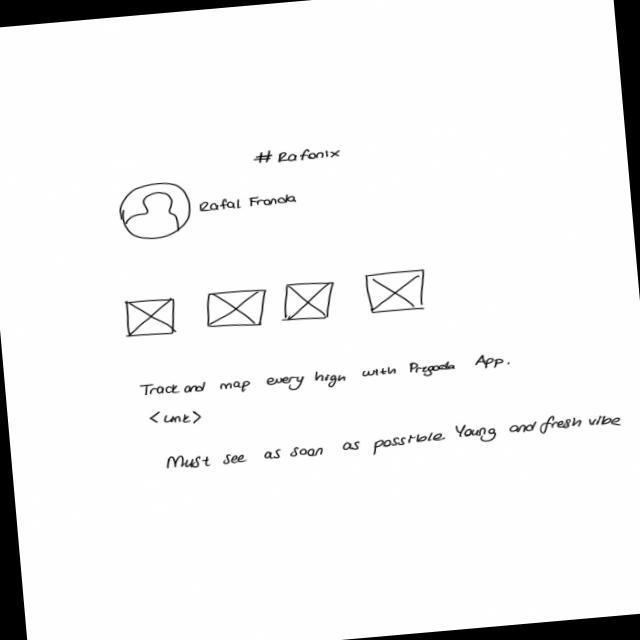 # Rafonix
Rafal Franda
Track and map every high with App.
<Link>
Must see as soon as possible. Young and fresh vibe